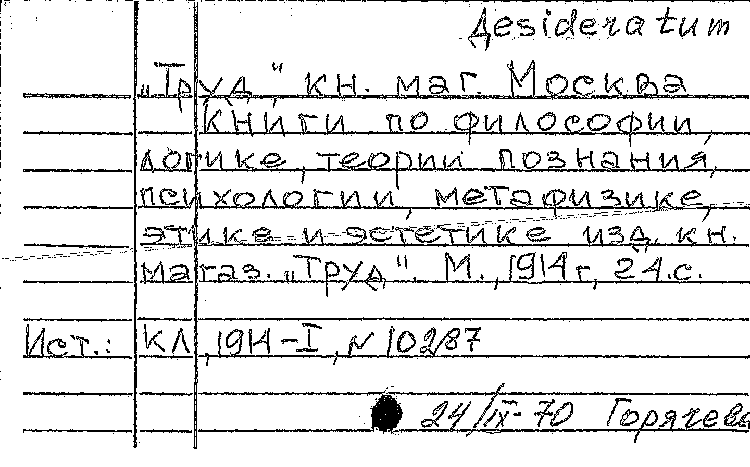 Desideratum
„Труд“, кн. маг. Москва
Книги по философии,
логике, теории познания,
психологии, метафизике,
этике и эстетике изд. кн.
магаз. „Труд“. М., 1914 г, 24.с.
Ист.: КЛ, 1914-I, N 10287
24/IX-70